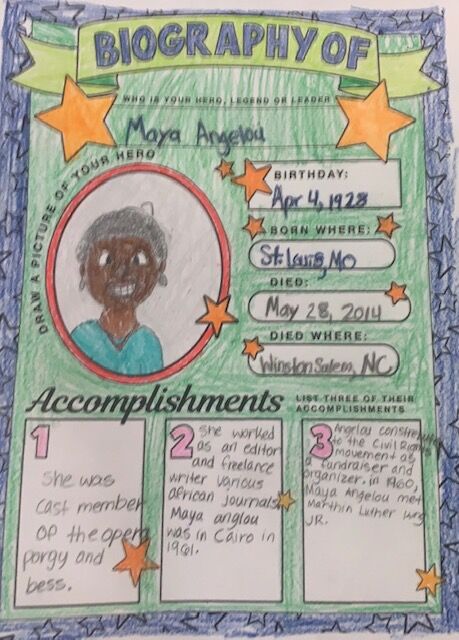 BIOGRAPHY OF
WHO IS YOUR HERO, LEGEND OR LEADER
Maya Angelou
DRAW A PICTURE OF YOUR HERO
BIRTHDAY:
Apr 4, 1928
BORN WHERE:
St. Louis, MO
DIED:
May 28, 2014
DIED WHERE:
Winston Salem, NC
Accomplishments
LIST THREE OF THEIR
ACCOMPLISHMENTS
1
She was
cast member
of the opera
porgy and
bess.
2
She worked
as an editor
and freelance
writer various
african journals
Maya anglou
was in Cairo in
1961.
3
Angelou
to the Civil Rights
movement as
a fundraiser and
organizer. in 1960,
Maya Angelou met
Marthin Luther
JR.